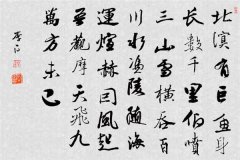 北溟有巨魚身
長數千里仰噴
三山雪橫吞百
川水憑陵隨海
運燀赫因風起
吾觀摩天飛九
萬方未已